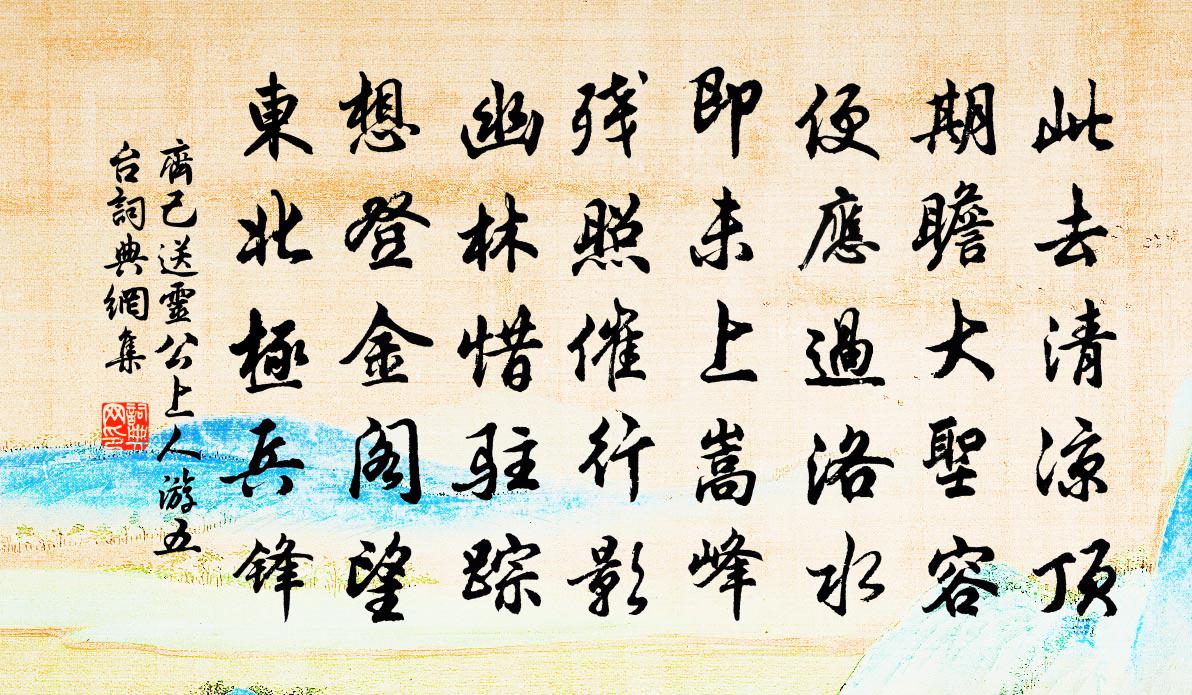 此去清涼頂
期瞻大聖容
便應過洛水
即未上嵩峰
残照催行影
幽林惜駐踪
想登金阁望
東北極兵锋
齊己送靈公上人游五
台詞典網集